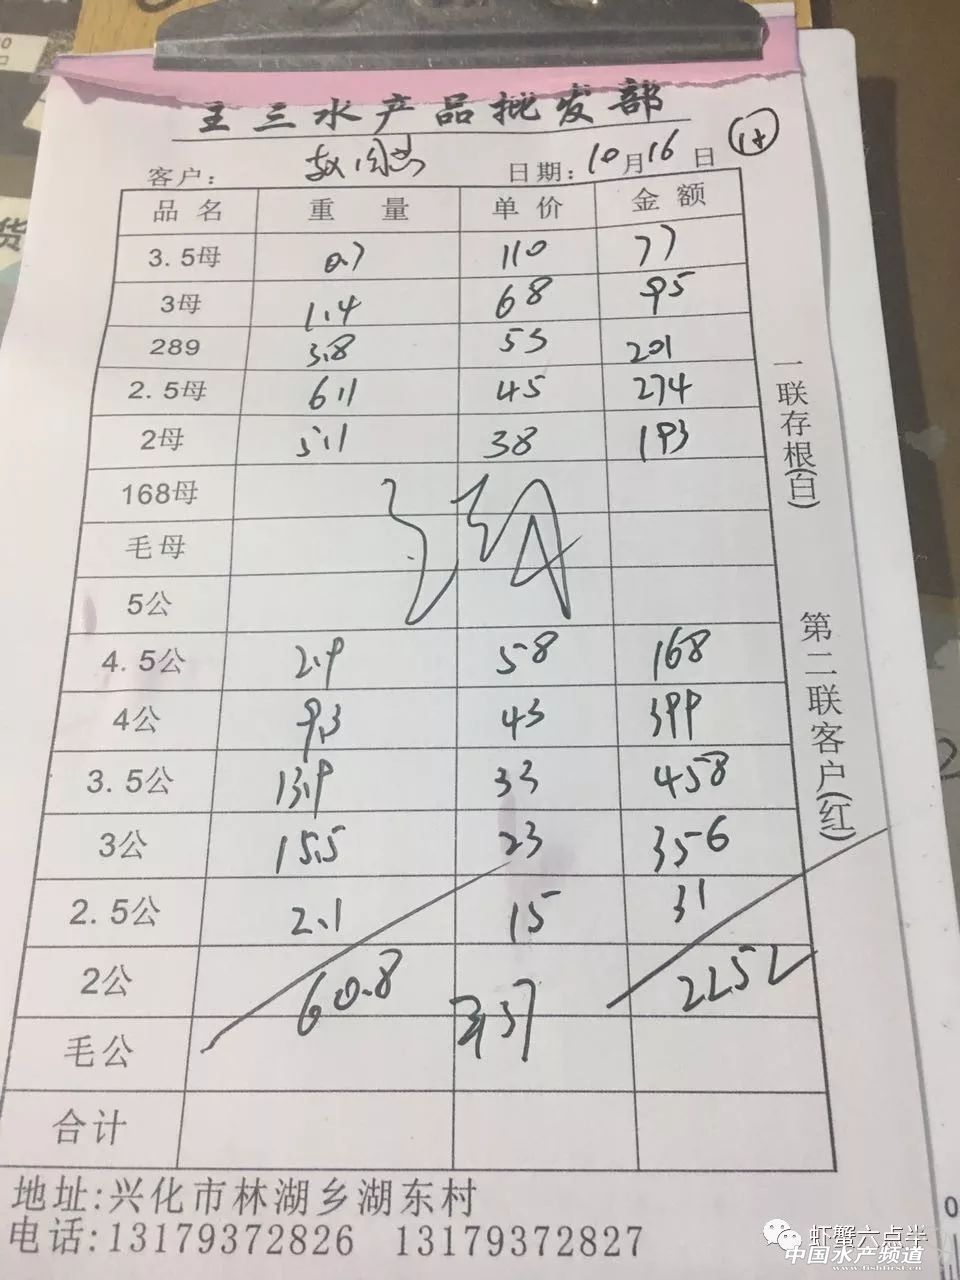 王三水产品批发部
客户： 日期：10月16日
品名 重量 单价 金额
3.5母 0.7 110 77
3母 1.4 68 95
289 3.8 53 201
2.5母 6.1 45 274
2母 5.1 38 193
168母
毛母
5公
4.5公 2.9 58 168
4公 9.3 43 399
3.5公 13.9 33 458
3公 15.5 23 356
2.5公 2.1 15 31
2公 60.8 37 2252
毛公
合计
一联存根(白)
第二联客户(红)
地址:兴化市林湖乡湖东村
电话:13179372826 13179372827
虾蟹六点半
中国水产频道